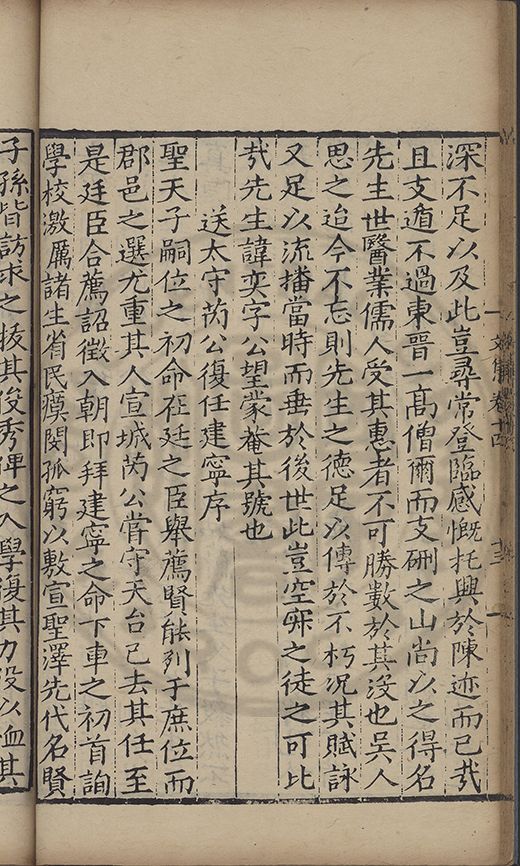 深不足以及此豈尋常登臨感慨托興於陳迹而已哉
且支遁不過東晉一髙僧爾而支硎之山尚以之得名
先生世醫業儒人受其惠者不可勝數於其没也吳人
思之迨今不忘則先生之德足以傳於不朽况其賦詠
又足以流播當時而垂於後世此豈空寂之徒之可比
㢤先生諱奕字公望蒙菴其號也
送太守芮公復任建寧序
聖天子嗣位之初命在廷之臣舉薦賢能列于庶位而
郡邑之選尤重其人宣城芮公嘗守天台已去其任至
是廷臣合薦詔徴入朝即拜建寧之命下車之初首詢
學校激厲諸生省民瘼閔孤窮以敷宣聖澤先代名賢
子孫皆訪求之拔其俊秀俾之入學復其力役以恤其
卷十四
十三